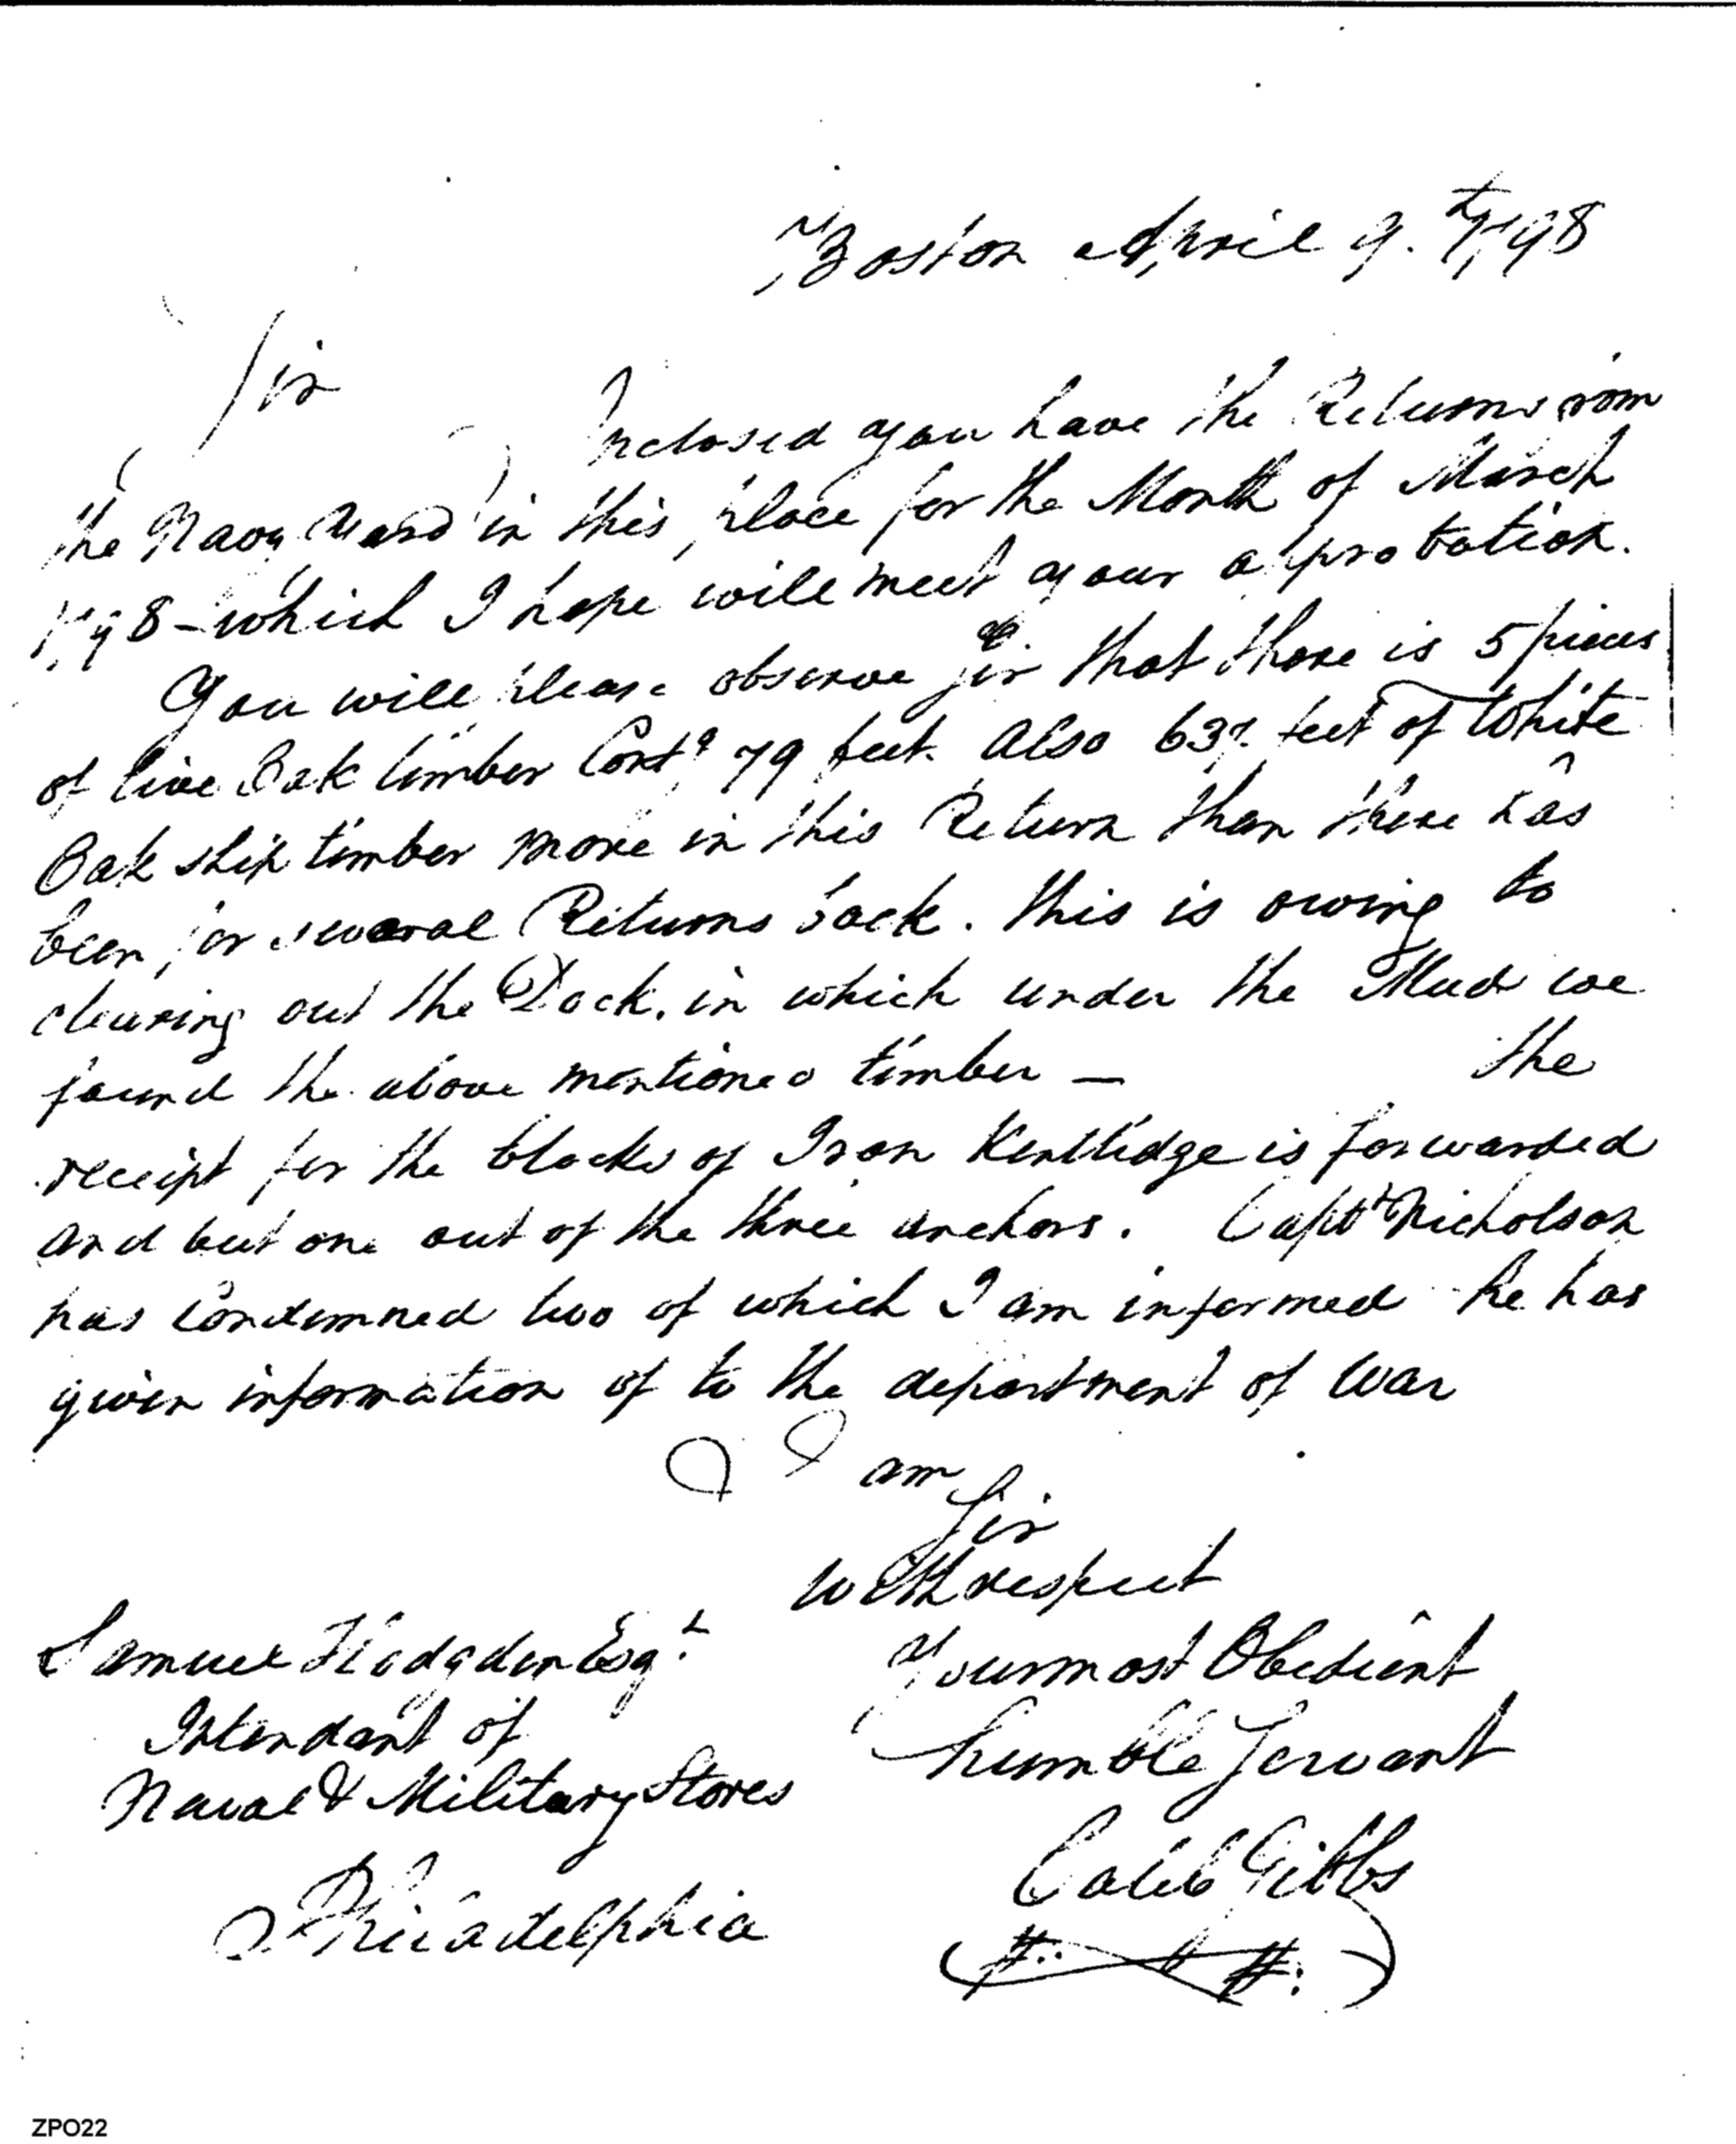 Boston April 9.th 1798
Sir
Inclosed you have the Returns from
the Navy Yard in this place for the Month of March
1798 - which I hope will meet your approbation.
You will please observe Sir that there is 5 pieces
of live Oak timber Contg 79 feet. Also 637 feet of White
Oak ship timber more in this Return than there has
been for several Returns back. this is owing to
clearing out the Dock, in which under the Mud we
found the above mentioned timber — the
receipt for the blocks of Iron Kentlidge is forwarded
and but one out of the three anchors. Capt Nicholson
has condemned two of which I am informed he has
given information of to the department of War
I am
Sir
With respect
Your most Obedient
humble Servant
Caleb Gibbs
Samuel Hodgdon Esqr
Intendant of
Naval & Military Stores
Philadelphia
ZPO22